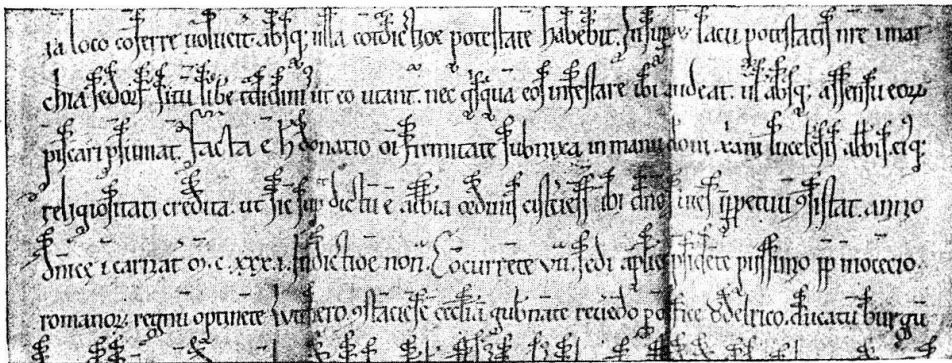 ia loco cōferre uoluerit. absq; ulla cōtdictiōe potestate habebit. Insup lacū potestatis nr̄e i mar
chia sedorf situ libe tdidim ut eo utant. nec qsqua eos infestare ibi audeat. ul absq; assensu eoꝝ
piscari psumat. facta ē h donatio oī firmitate subnixa in manu doni xani lucelēsis abbis. eiq;
religiositati credita. ut sic sup dictū ē abbia ordinis cistciēs ibi dno ī ppetuū ꝯsistat. anno
dnice i carnat. M. C. xxx. i. Indictiōe non. Cōcurrēte vii. sedi aplice psidēte piissimo pp inocēcio.
romanoꝝ regnū optinēte lutero. ꝯstaciēse ecclia gubnate reuēdo pōfice odelrico. ducatū burgū